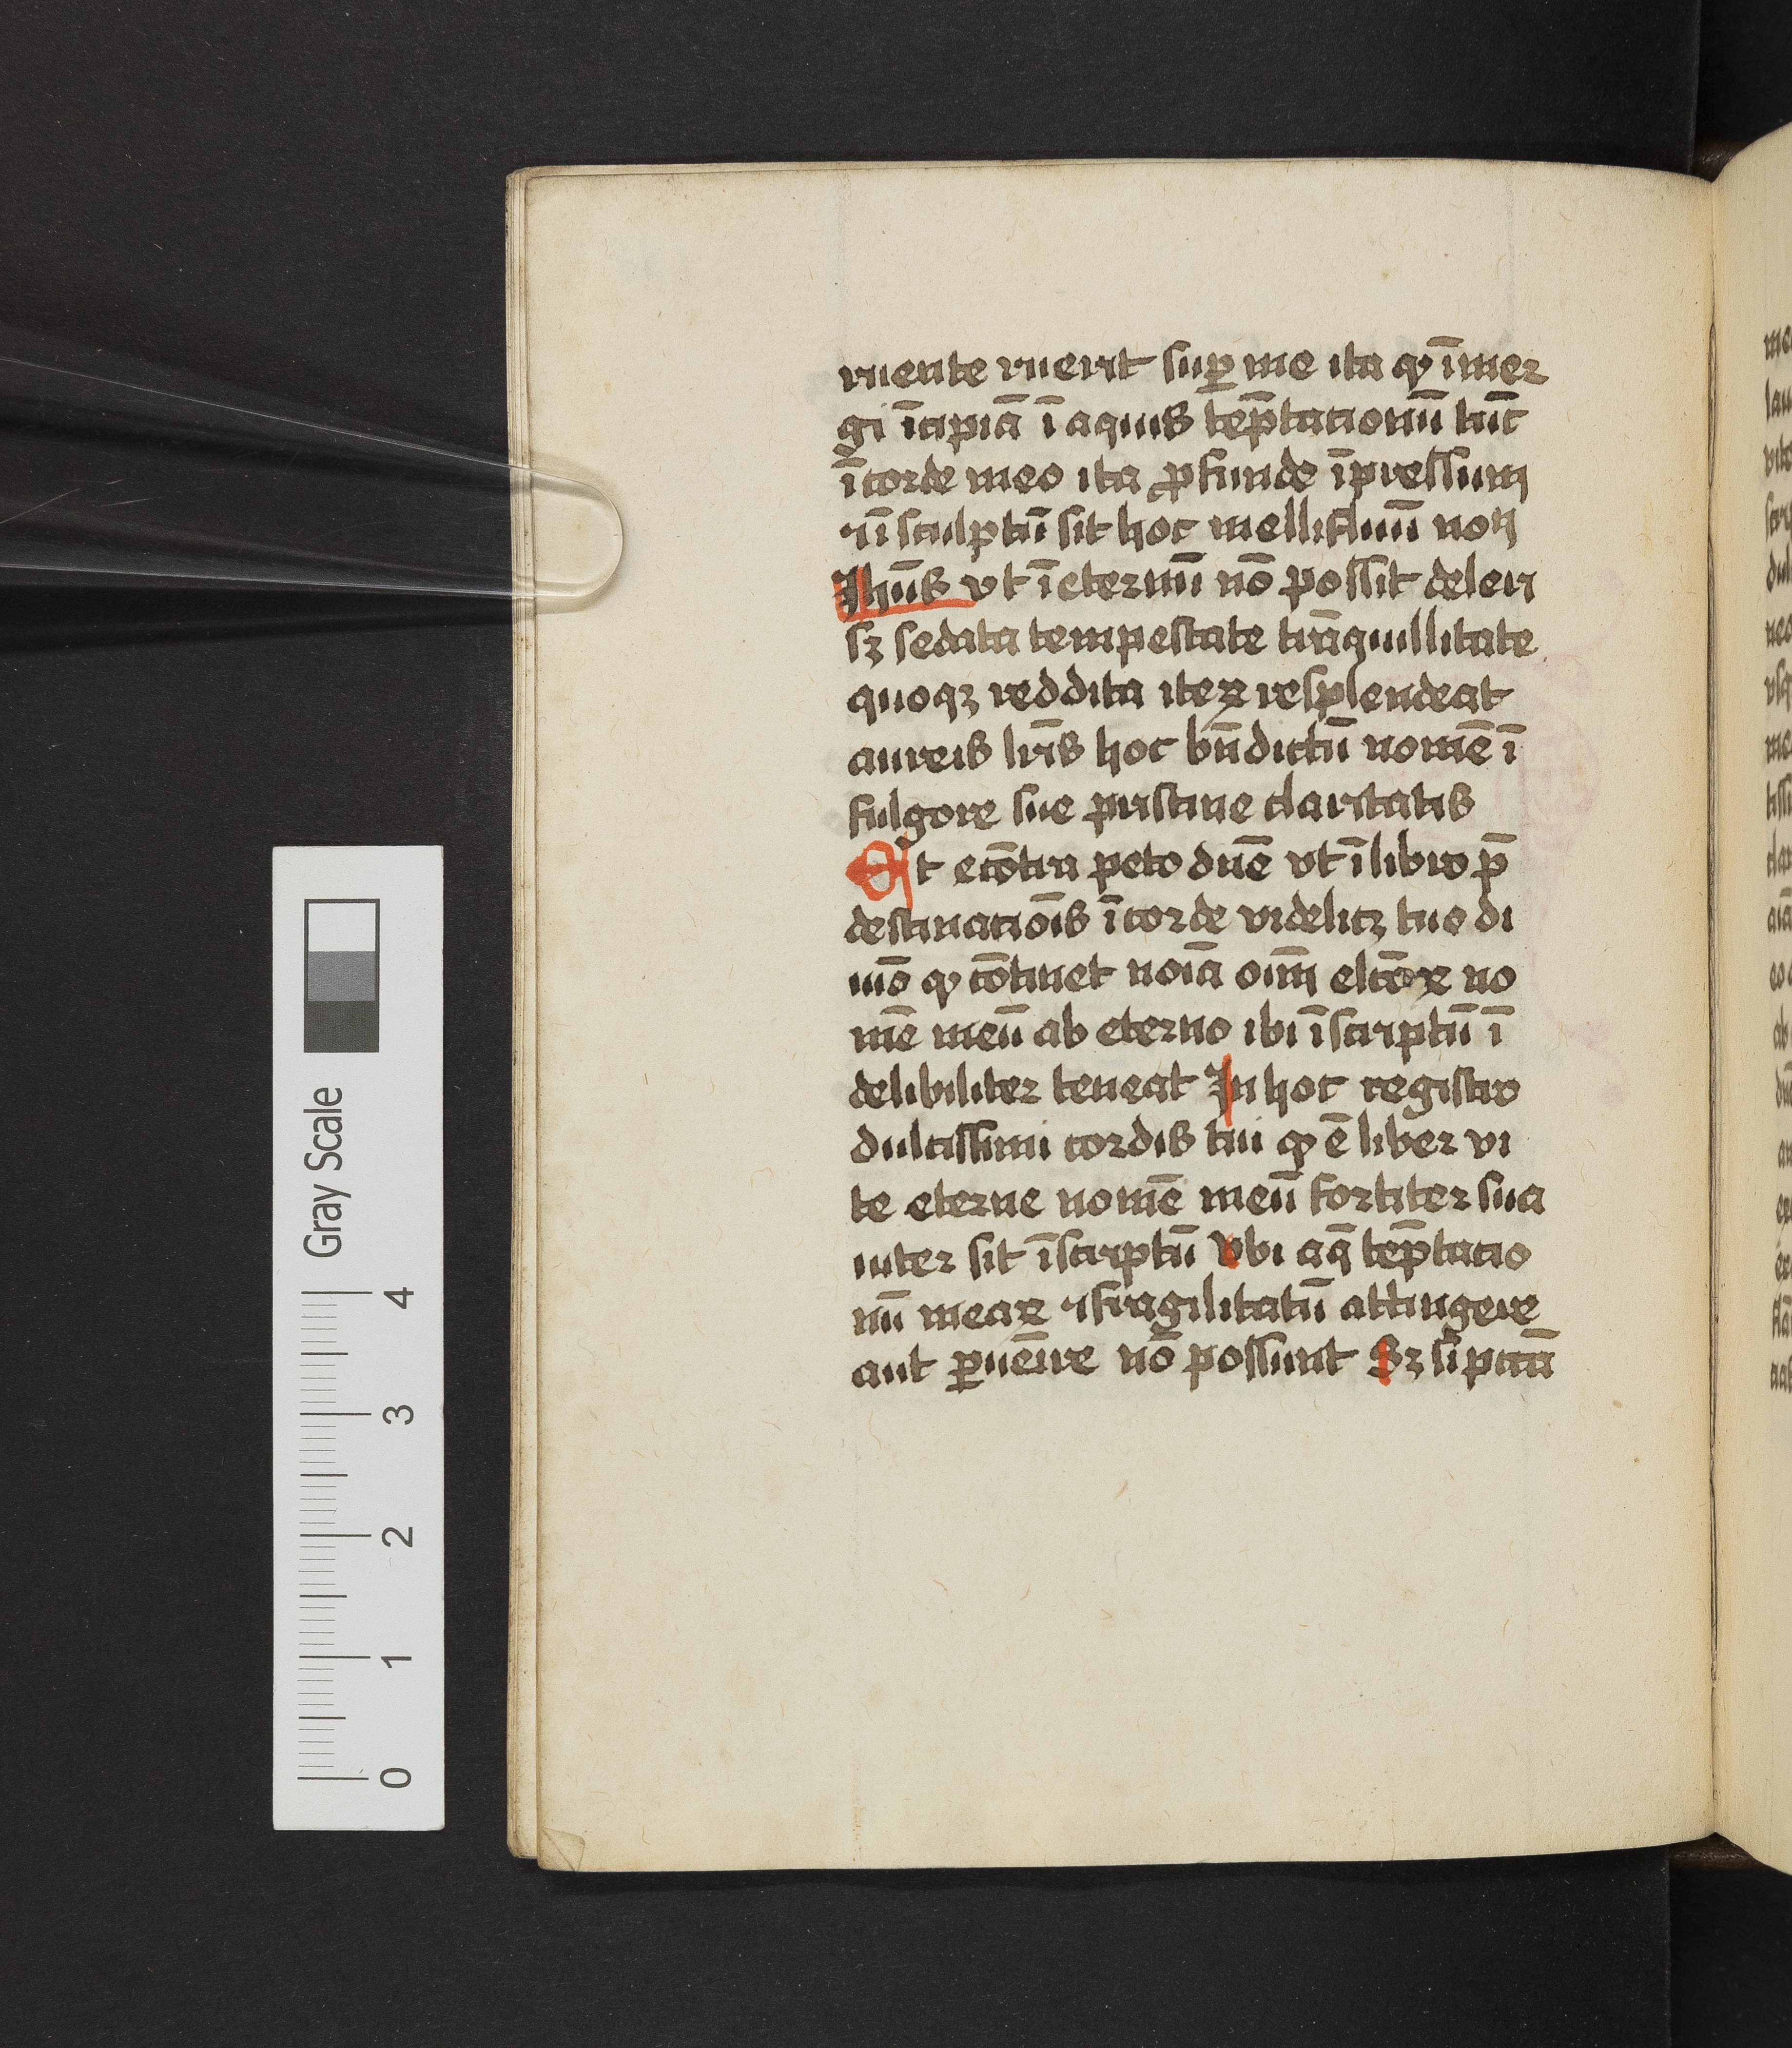 ruente ruerit suꝑ me ita ꝙ īmer
gi īcipiā ī aquis tēp̄tacionū tūc
ī corde meo ita ꝓfunde īpressum
⁊ ī sculptū sit hoc mellifluū nom̄
Jhūs vt ī eternū nō possit deleri
sꝫ sedata tempestate trāquillitate
quoqꝫ reddita iteꝝ resplendeat
aureis lr̄is hoc bn̄dictū nomē ī
fulgore sue pristine claritatis
Et ecōtra peto dn̄e vt ī libro p̄
destinaciōis ī corde videlicꝫ tuo di
uīo ꝙ cōtinet noīa oīm elcōꝝ no
mē meū ab eterno ibi īscriptū ī
delibiliter teneat In hoc registro
dulcissimi cordis tui ꝙ ē liber vi
te eterne nomē meū fortiter sua
uiter sit īscriptū Vbi aq̄ tēp̄tacio
nū meaꝝ ⁊ fragilitatū attingere
aut ꝑuēire nō possunt Sꝫ si
Gray Scale
4
3
2
1
0